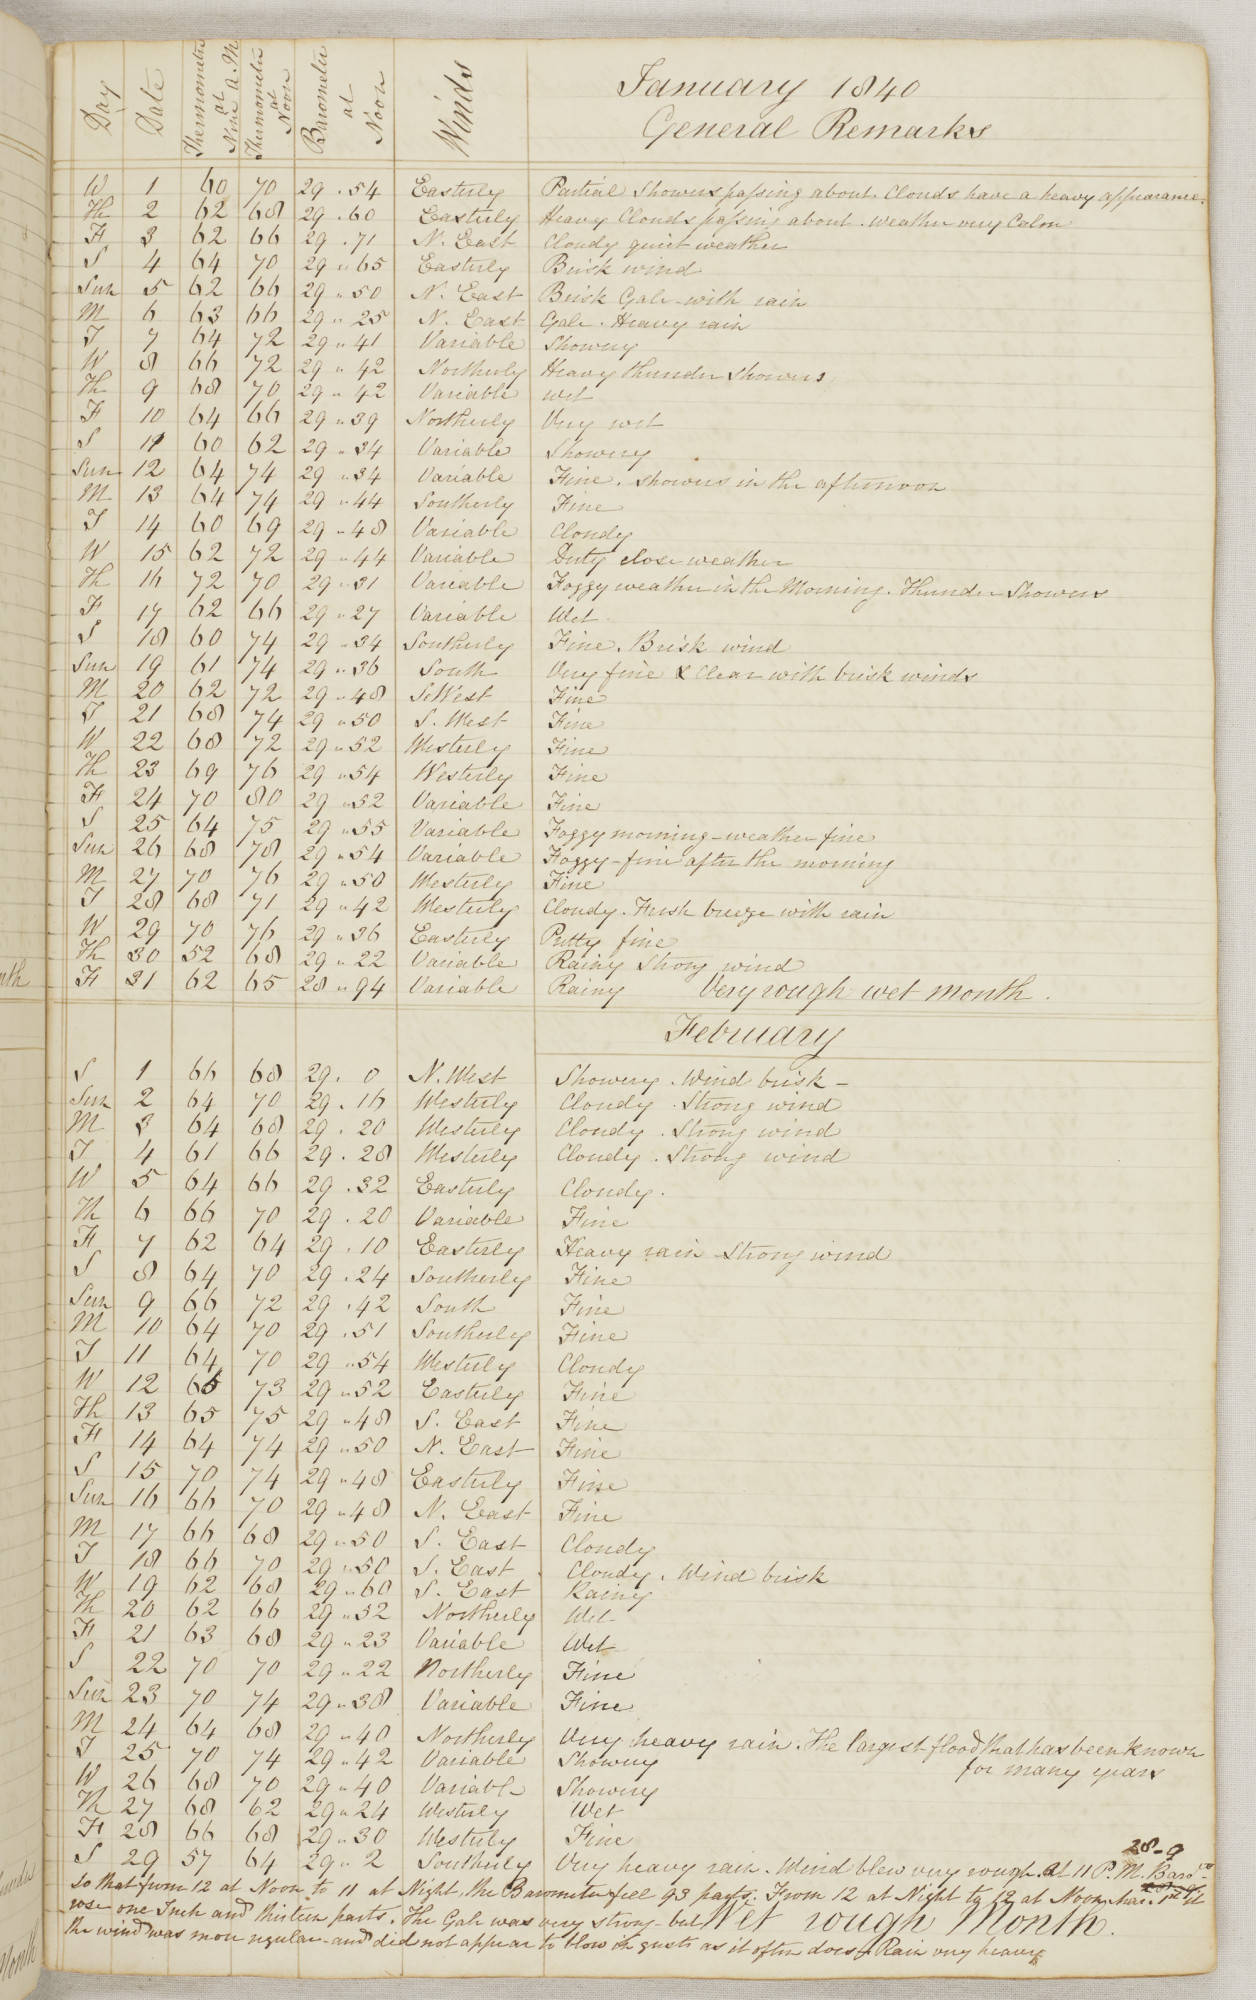 January 1840
Day Date Thermometer at Nine A.M Thermometer at Noon Barometer at Noon Winds General Remarks
W 1 60 70 29 . 54 Easterly Partial Showers passing about. Clouds have a heavy appearance.
Th 2 62 68 29 . 60 Easterly Heavy Clouds passing about. weather very Calm
F 3 62 66 29 . 71 N. East Cloudy quiet weather
S 4 64 70 29 " 65 Easterly Brisk wind
Sun 5 62 66 29 " 50 N. East Brisk Gale with rain
M 6 63 66 29 " 25 N. East Gale. Heavy rain
T 7 64 72 29 " 41 Variable Showery
W 8 66 72 29 " 42 Northerly Heavy thunder showers
Th 9 68 70 29 " 42 Variable wet
F 10 64 66 29 " 39 Northerly Very wet
S 11 60 62 29 " 34 Variable Showery
Sun 12 64 74 29 " 34 Variable Fine. showers in the afternoon
M 13 64 74 29 " 44 Southerly Fine
T 14 60 69 29 " 48 Variable Cloudy
W 15 62 72 29 " 44 Variable Duty close weather
Th 16 72 70 29 " 31 Variable Foggy weather in the Morning. Thunder Showers
F 17 62 66 29 " 27 Variable Wet
S 18 60 74 29 " 34 Southerly Fine. Brisk wind
Sun 19 61 74 29 " 36 South Very fine & Clear with brisk winds
M 20 62 72 29 " 48 S. West Fine
T 21 68 74 29 " 50 S. West Fine
W 22 68 72 29 " 52 Westerly Fine
Th 23 69 76 29 " 54 Westerly Fine
F 24 70 80 29 " 52 Variable Fine
S 25 64 75 29 " 55 Variable Foggy morning - weather fine
Sun 26 68 78 29 " 54 Variable Foggy - fine after the morning
M 27 70 76 29 " 50 Westerly Fine
T 28 68 71 29 " 42 Westerly Cloudy. Fresh breeze with rain
W 29 70 76 29 " 36 Easterly Pretty fine
Th 30 52 68 29 " 22 Variable Rainy Strong wind
F 31 62 65 28 " 94 Variable Rainy Very rough wet month.
February
S 1 66 68 29 . 0 N. West Showery. Wind brisk -
Sun 2 64 70 29 . 16 Westerly Cloudy. Strong wind
M 3 64 68 29 . 20 Westerly Cloudy. Strong wind
T 4 61 66 29 . 28 Westerly Cloudy. Strong wind
W 5 64 66 29 . 32 Easterly Cloudy.
Th 6 66 70 29 . 20 Variable Fine
F 7 62 64 29 . 10 Easterly Heavy rain Strong wind
S 8 64 70 29 . 24 Southerly Fine
Sun 9 66 72 29 . 42 South Fine
M 10 64 70 29 . 51 Southerly Fine
T 11 64 70 29 " 54 Westerly Cloudy
W 12 65 73 29 " 52 Easterly Fine
Th 13 65 75 29 " 48 S. East Fine
F 14 64 74 29 " 50 N. East Fine
S 15 70 74 29 " 48 Easterly Fine
Sun 16 66 70 29 " 48 N. East Fine
M 17 66 68 29 " 50 S. East Cloudy
T 18 66 70 29 " 50 S. East Cloudy. Wind brisk
W 19 62 68 29 " 60 S. East Rainy
Th 20 62 66 29 " 52 Northerly Wet
F 21 63 68 29 " 23 Variable Wet
S 22 70 70 29 " 22 Northerly Fine
Sun 23 70 74 29 " 38 Variable Fine
M 24 64 68 29 " 40 Northerly Very heavy rain. The largest flood that has been known
for many years
T 25 70 74 29 " 42 Variable Showery
W 26 68 70 29 " 40 Variable Showery
Th 27 68 62 29 " 24 Westerly Wet
F 28 66 68 29 " 30 Westerly Fine
28-9
S 29 57 64 29 " 2 Southerly Very heavy rain. Wind blew very rough. At 11 P.M. Baro.r
so that from 12 at Noon to 11 at Night, the Barometer feel 93 parts. From 12 at Night to 12 at Noon Mar. 1st it
rose one Inch and thirteen parts. The Gale was very strong - but Wet rough Month.
the wind was more regular - and did not appear to blow in gusts as it often does. Rain very heavy